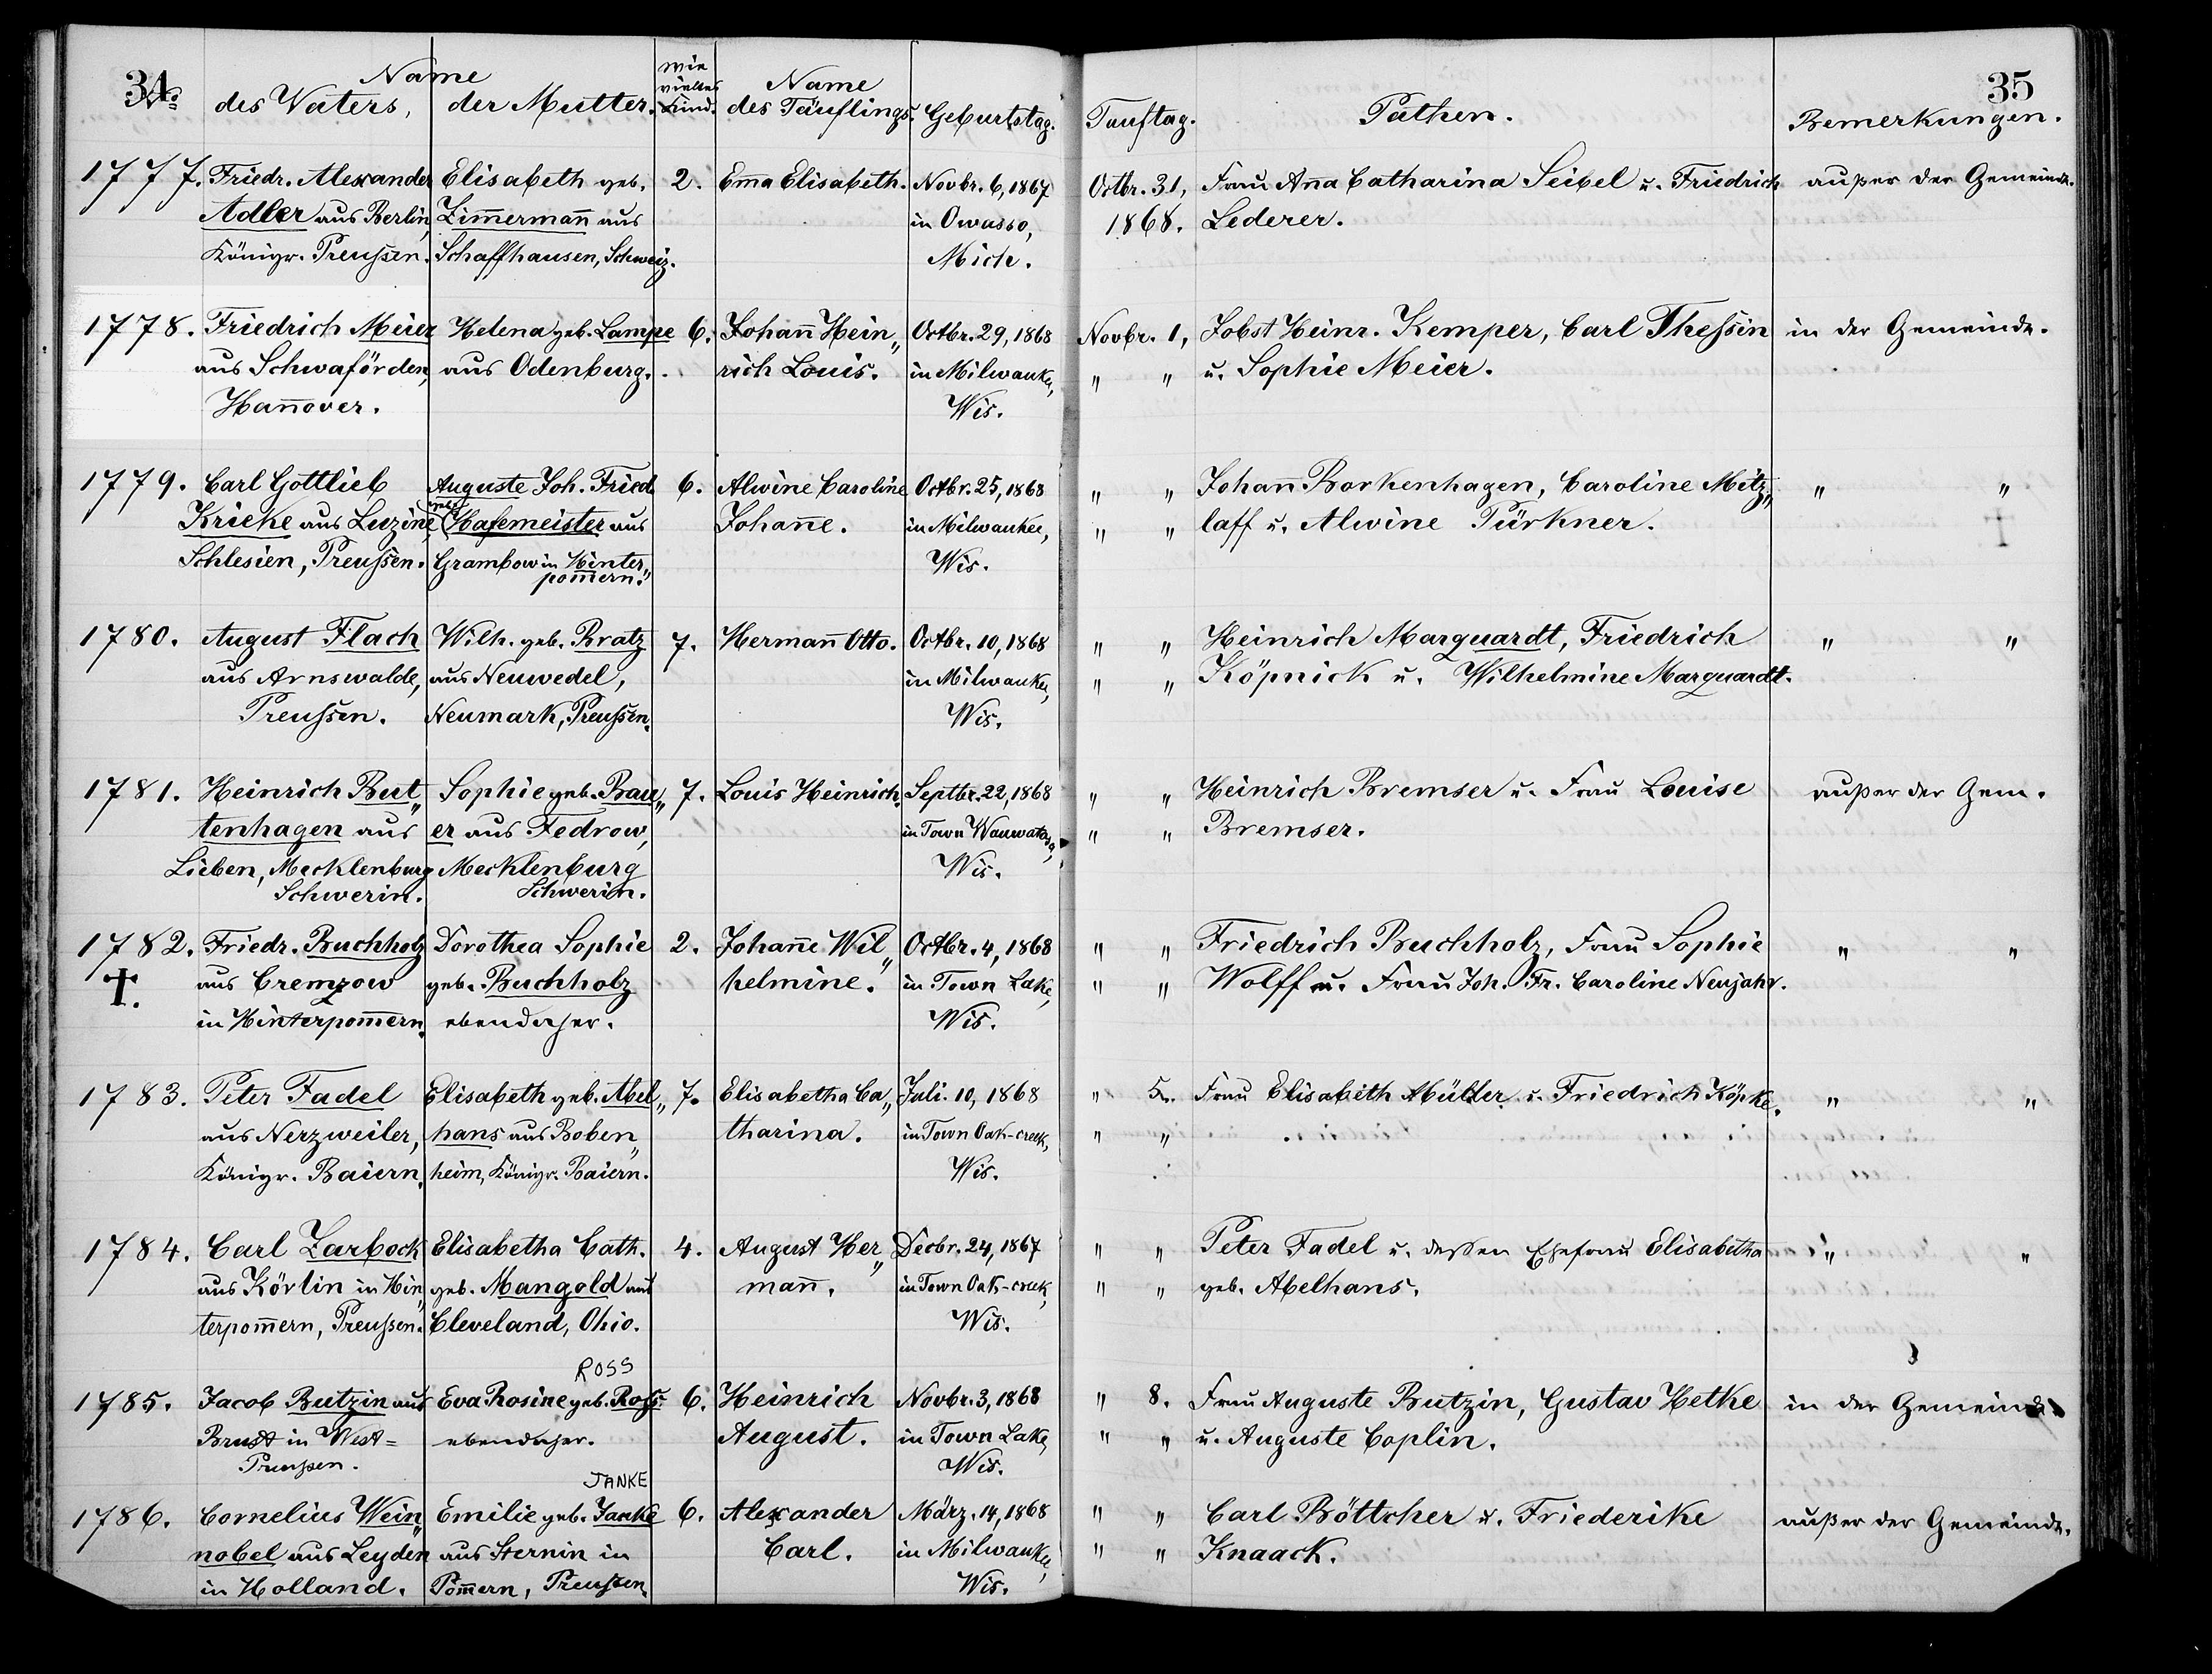 34 35
Name wie Name
No. des Vaters, der Mutter. vieltes Kind. des Täuflings. Geburtstag. Tauftag. Pathen. Bemerkungen.
1777. Friedr. Alexander Elisabeth geb. 2. Em̅a Elisabeth. Novbr. 6, 1867 Octbr. 31, Frau An̅a Catharina Seibel u. Friedrich außer der Gemeinde.
Adler aus Berlin, Zim̅erman̅ aus in Owasso, 1868. Lederer.
Königr. Preußen. Schaffhausen, Schweiz. Mich.
1778. Friedrich Meier Helena geb. Lampe 6. Johan̅ Hein„ Octbr. 29, 1868 Novbr. 1, Jobst Heinr. Kemper, Carl Theßin in der Gemeinde.
aus Schwaförden, aus Odenburg. rich Louis. in Milwaukee, " " u. Sophie Meier.
Han̅over. Wis.
1779. Carl Gottlieb Auguste Joh. Fried. 6. Alwine Caroline Octbr. 25, 1868 " " Johan̅ Borkenhagen, Caroline Mitz„ " "
Krieke aus Luzine, Hafemeister aus Johan̅e. in Milwaukee, " " laff u. Alwine Türkner.
Schlesien, Preußen. Grambow in Hinter„ Wis.
pom̅ern.
1780. August Flach Wilh. geb. Bratz 7. Herman̅ Otto. Octbr. 10, 1868 " " Heinrich Marquardt, Friedrich " "
aus Arnswalde, aus Neuwedel, in Milwaukee, " " Köpnick u. Wilhelmine Marquardt.
Preußen. Neumark, Preußen. Wis.
1781. Heinrich But„ Sophie geb. Bau„ 7. Louis Heinrich. Septbr. 22, 1868 " " Heinrich Bremser u. Frau Louise außer der Gem.
tenhagen aus er aus Fedrow, in Town Wauwatosa, " " Bremser.
Lieben, Mecklenburg Mecklenburg Wis.
Schwerin. Schwerin.
1782. Friedr. Buchholz Dorothea Sophie 2. Johan̅e Wil„ Octbr. 4, 1868 " " Friedrich Buchholz, Frau Sophie " "
†. aus Cremzow geb. Buchholz helmine. in Town Lake, " " Wolff u. Frau Joh. Fr. Caroline Neujahr.
in Hinterpom̅ern. ebendaher. Wis.
1783. Peter Fadel Elisabeth geb. Abel„ 7. Elisabetha Ca„ Juli. 10, 1868 " 5. Frau Elisabeth Müller u. Friedrich Köpke. " "
aus Nerzweiler, hans aus Boben„ tharina. in Town Oak-creek, " "
Königr. Baiern. heim, Königr. Baiern. Wis.
1784. Carl Zarbock Elisabetha Cath. 4. August Her„ Decbr. 24, 1867 " " Peter Fadel u. deßen Ehefrau Elisabetha " "
aus Körlin in Hin„ geb. Mangold aus man̅. in Town Oak-creek, " " geb. Abelhans.
terpom̅ern, Preußen. Cleveland, Ohio. Wis.
ROSS
1785. Jacob Butzin aus Eva Rosine geb. Roß. 6. Heinrich Novbr. 3, 1868 " 8. Frau Auguste Butzin, Gustav Hetke in der Gemeinde.
Brust in West= ebendaher. August. in Town Lake, " " u. Auguste Coplin.
Preußen. Wis.
JANKE
1786. Cornelius Wein„ Emilie geb. Janke 6. Alexander März. 14, 1868 " " Carl Böttcher u. Friederike außer der Gemeinde.
nobel aus Leyden aus Sternin in Carl. in Milwaukee, " " Knaack.
in Holland. Pom̅ern, Preußen. Wis.